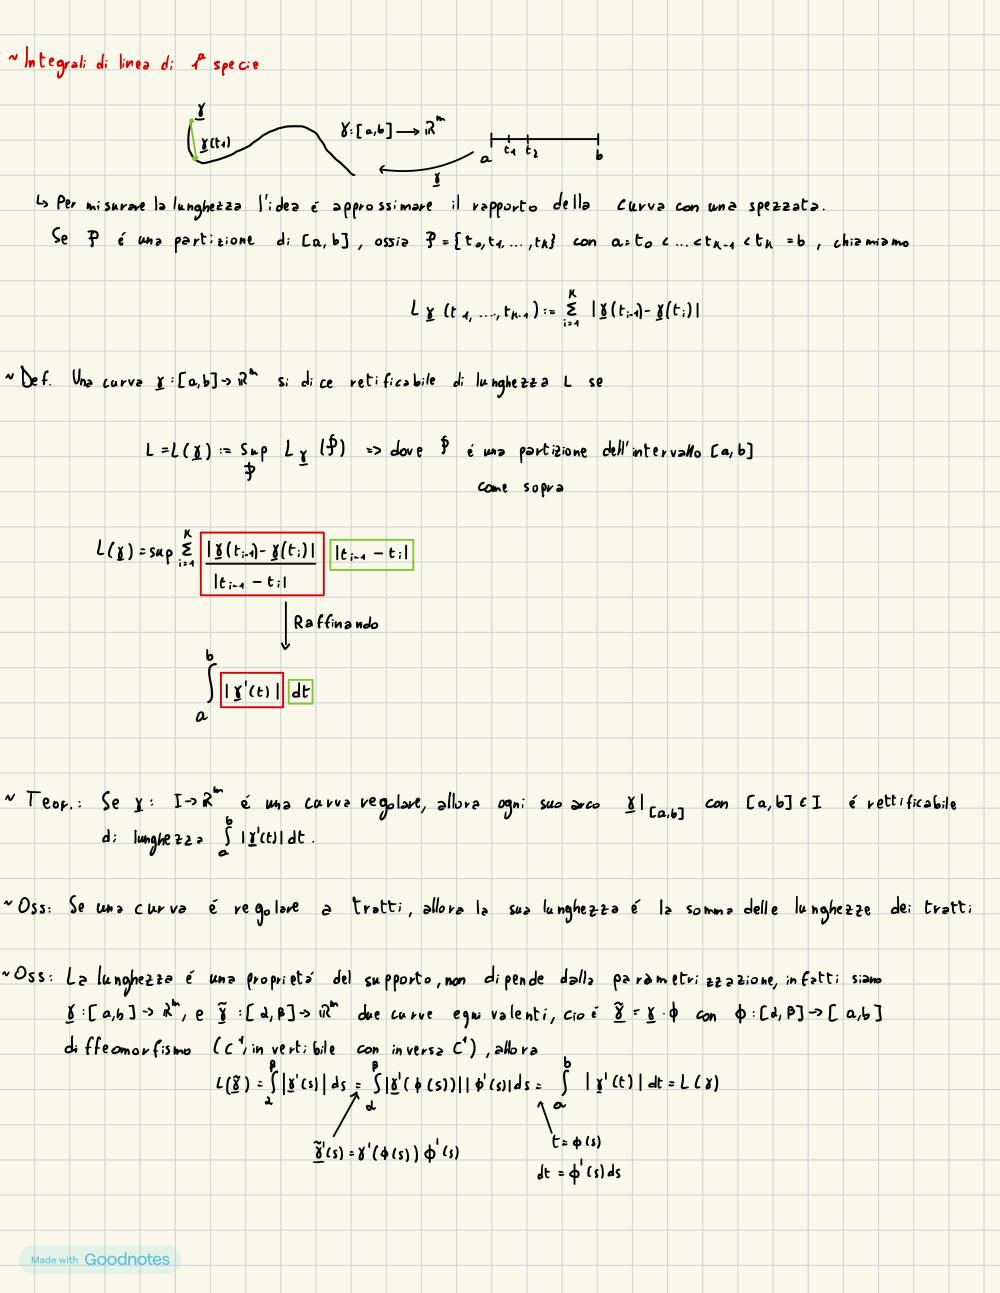 ~ Integrali di linea di 1ª specie
γ
γ(t₁)
γ:[a,b] ⟶ ℝᵐ
a t₁ t₂ b
γ
↳ Per misurare la lunghezza l'idea é approssimare il rapporto della curva con una spezzata.
Se P é una partizione di [a,b], ossia P={t₀,t₁,...,tₖ} con a=t₀<...<tₖ₋₁<tₖ=b, chiamiamo
L_γ (t₁, ...., tₖ₋₁) := Σ_{i=1}^{K} |γ(tᵢ₋₁)-γ(tᵢ)|
~ Def. Una curva γ:[a,b]→ℝᵐ si dice retificabile di lunghezza L se
L=L(γ) := Sup_P L_γ (P) => dove P é una partizione dell'intervallo [a,b]
come sopra
L(γ)=sup Σ_{i=1}^{K} |γ(tᵢ₋₁)-γ(tᵢ)| / |tᵢ₋₁-tᵢ| |tᵢ₋₁-tᵢ|
Raffinando
∫_a^b |γ'(t)| dt
~ Teor.: Se γ: I→ℝᵐ é una curva regolare, allora ogni suo arco γ|_[a,b] con [a,b]⊂I é rettificabile
di lunghezza ∫_a^b |γ'(t)| dt.
~ Oss: Se una curva é regolare a tratti, allora la sua lunghezza é la somma delle lunghezze dei tratti
~ Oss: La lunghezza é una proprietá del supporto, non dipende dalla parametrizzazione, infatti siano
γ:[a,b]→ℝᵐ, e γ̃:[α,β]→ℝᵐ due curve equivalenti, cioé γ̃=γ·ϕ con ϕ:[α,β]→[a,b]
diffeomorfismo (C¹, invertibile con inversa C¹), allora
L(γ̃)=∫_α^β |γ'(s)| ds = ∫_α^β |γ'(ϕ(s))||ϕ'(s)| ds = ∫_a^b |γ'(t)| dt = L(γ)
γ̃'(s)=γ'(ϕ(s)) ϕ'(s)
t=ϕ(s)
dt=ϕ'(s)ds
Made with Goodnotes